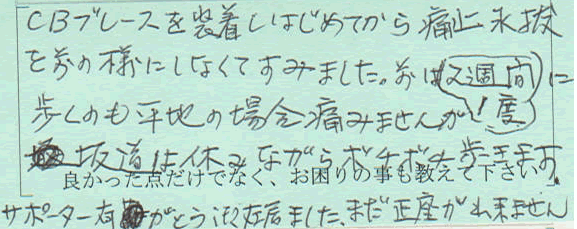 CBブレースを装着しはじめてから痛止 水抜
を前の様にしなくてすみました。前は2週間に
1度
歩くのも平地の場合痛みませんが
坂道は休みながらボチボチ歩きます
良かった点だけでなく、お困りの事も教えて下さい。
サポーター有がとうございました、まだ正座が出来ません